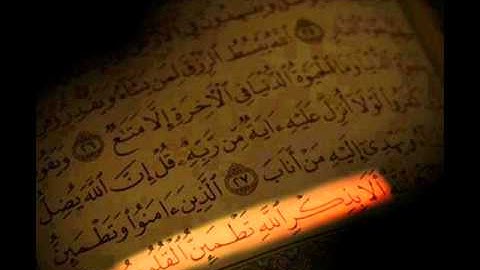 ٱللَّهُ يَبْسُطُ ٱلرِّزْقَ لِمَن يَشَآءُ وَيَقْدِرُ
وَمَا ٱلْحَيَوٰةُ ٱلدُّنْيَا فِى ٱلْأَخِرَةِ إِلَّا مَتَـٰعٌ ٢٦ وَيَقُو
كَفَرُوا۟ لَوْلَآ أُنزِلَ عَلَيْهِ ءَايَةٌ مِّن رَّبِّهِۦ قُلْ إِنَّ ٱللَّهَ يُضِلُّ
وَيَهْدِىٓ إِلَيْهِ مَنْ أَنَابَ ٢٧ ٱلَّذِينَ ءَامَنُوا۟ وَتَطْمَئِنُّ
أَلَا بِذِكْرِ ٱللَّهِ تَطْمَئِنُّ ٱلْقُلُو